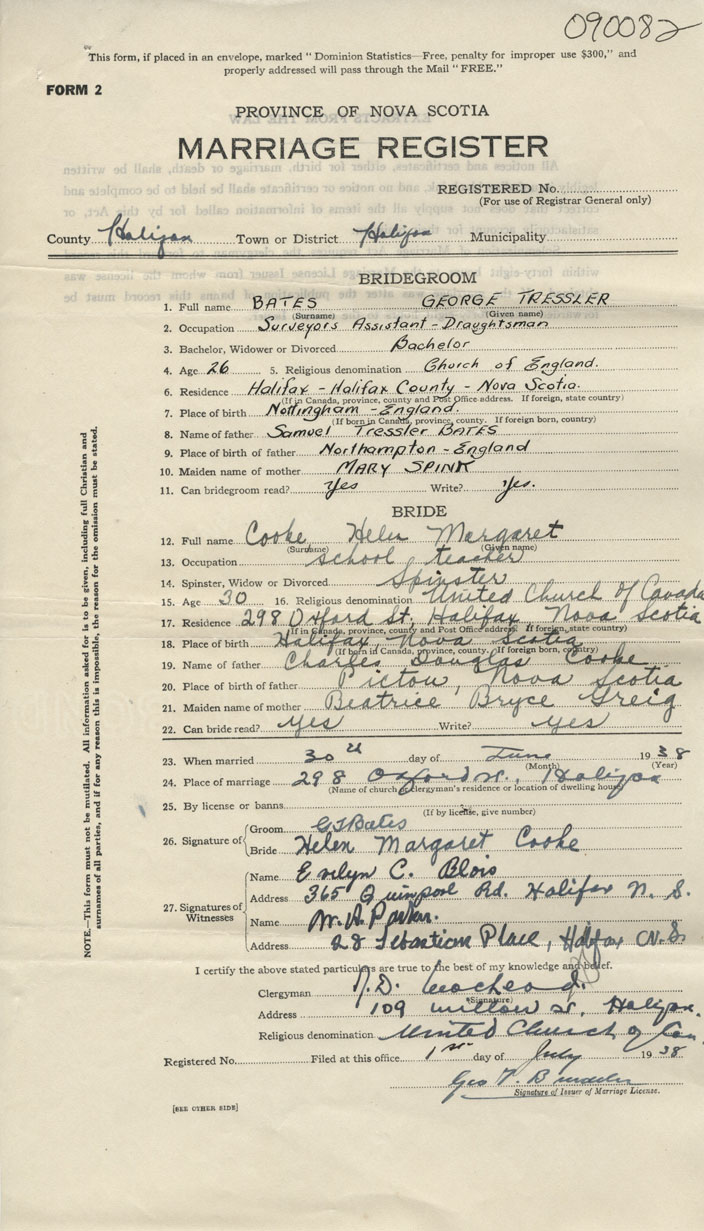 090082
This form, if placed in an envelope, marked "Dominion Statistics—Free, penalty for improper use $300," and
properly addressed will pass through the Mail "FREE."
FORM 2
PROVINCE OF NOVA SCOTIA
MARRIAGE REGISTER
REGISTERED No.
(For use of Registrar General only)
County Halifax Town or District Halifax Municipality
BRIDEGROOM
1. Full name BATES GEORGE TRESSLER
(Surname) (Given name)
2. Occupation Surveyors Assistant - Draughtsman
3. Bachelor, Widower or Divorced Bachelor
4. Age 26 5. Religious denomination Church of England.
6. Residence Halifax - Halifax County - Nova Scotia.
(If in Canada, province, county and Post Office address. If foreign, state country)
7. Place of birth Nottingham - England.
(If born in Canada, province, county. If foreign born, country)
8. Name of father Samuel Tressler BATES
9. Place of birth of father Northampton - England
10. Maiden name of mother MARY SPINK
11. Can bridegroom read? Yes Write? Yes.
BRIDE
12. Full name Cooke Helen Margaret
(Surname) (Given name)
13. Occupation school teacher
14. Spinster, Widow or Divorced Spinster
15. Age 30 16. Religious denomination United Church of Canada
17. Residence 298 Oxford St, Halifax Nova Scotia
(If in Canada, province, county and Post Office address. If foreign, state country)
18. Place of birth Halifax, Nova Scotia
(If born in Canada, province, county. If foreign born, country)
19. Name of father Charles Douglas Cooke
20. Place of birth of father Pictou, Nova Scotia
21. Maiden name of mother Beatrice Bryce Greig
22. Can bride read? Yes Write? Yes
23. When married 30th day of June 1938
(Month) (Year)
24. Place of marriage 298 Oxford St., Halifax
(Name of church, clergyman's residence or location of dwelling house)
25. By license or banns
(If by license, give number)
26. Signature of
Groom G T Bates
Bride Helen Margaret Cooke
27. Signatures of Witnesses
Name Evelyn C. Blois
Address 365 Quinpool Rd. Halifax N. S.
Name Parker.
Address 28 Place, Halifax N.S.
I certify the above stated particulars are true to the best of my knowledge and belief.
Clergyman
(Signature)
Address 109 Willow St. Halifax.
Religious denomination United Church of Can.
Registered No. Filed at this office 1st day of July 1938
Geo
Signature of Issuer of Marriage License.
[SEE OTHER SIDE]
NOTE.—This form must not be mutilated. All information asked for is to be given, including full Christian and
surnames of all parties, and if for any reason this is impossible, the reason for the omission must be stated.